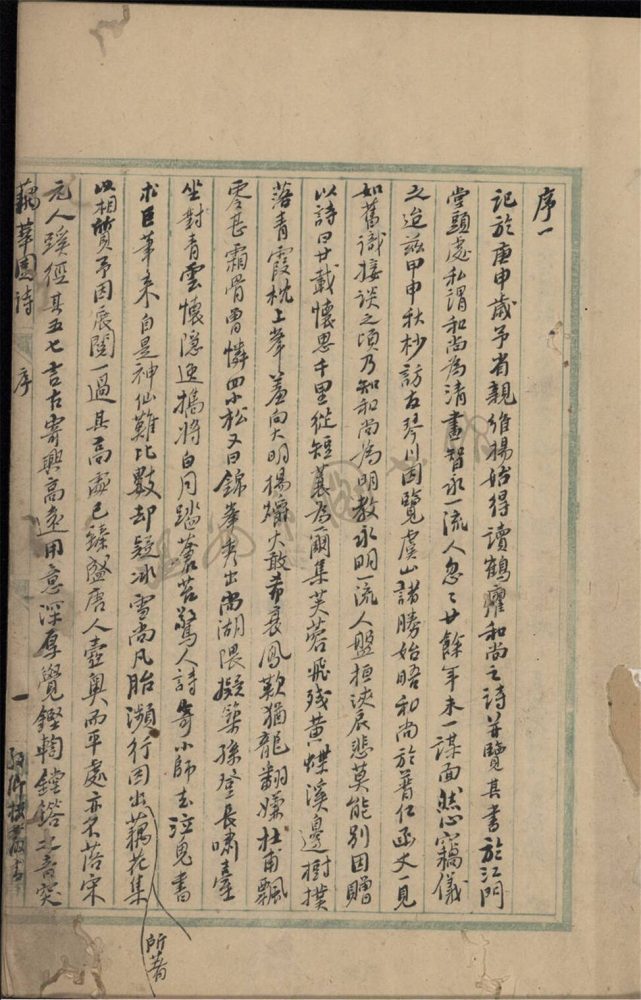 序一
記於庚申歲予省親維揚始得讀鶴癯和尚之詩并覽其書於江門
堂頭處私謂和尚為清畫智永一流人忽〻廿餘年未一謀面然心竊儀
之迨茲甲申秋杪訪友琴川因覽虞山諸勝始晤和尚於普仁函丈一見
如舊識接談之頃乃知和尚為明教永明一流人盤桓浹辰悲莫能別因贈
以詩曰廿載懷思千里從短蓑為爾集芙蓉飛殘黃蝶溪邊樹撲
落青霞枕上峯羞向大明揚爝火敢希衰鳳歎猶龍翻嫌杜甫飄
零甚霜骨曾憐四小松又曰錦峯秀出尚湖隈擬築孫登長嘯臺
坐對青雲懷隱逸攜將白月踏蒼苔驚人詩寄小師去泣鬼書
求臣筆來自是神仙難比數却疑冰雪尚凡胎瀕行因出藕花集
所著
以相質予因展閱一過其高處已臻盛唐人壼奧而平處亦不落宋
元人蹊徑其五七言古寄興高遠用意深厚覺鏗鞫鏜鎝之音突
藕華園詩 序 一